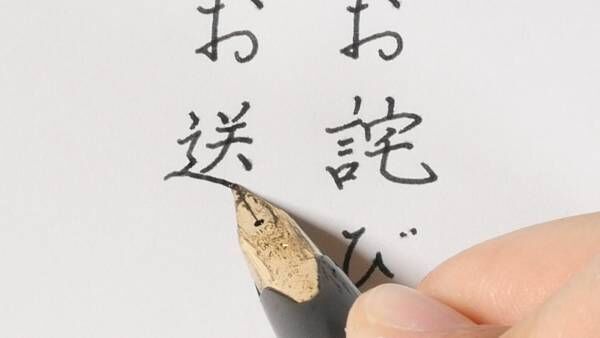 お詫び
お送